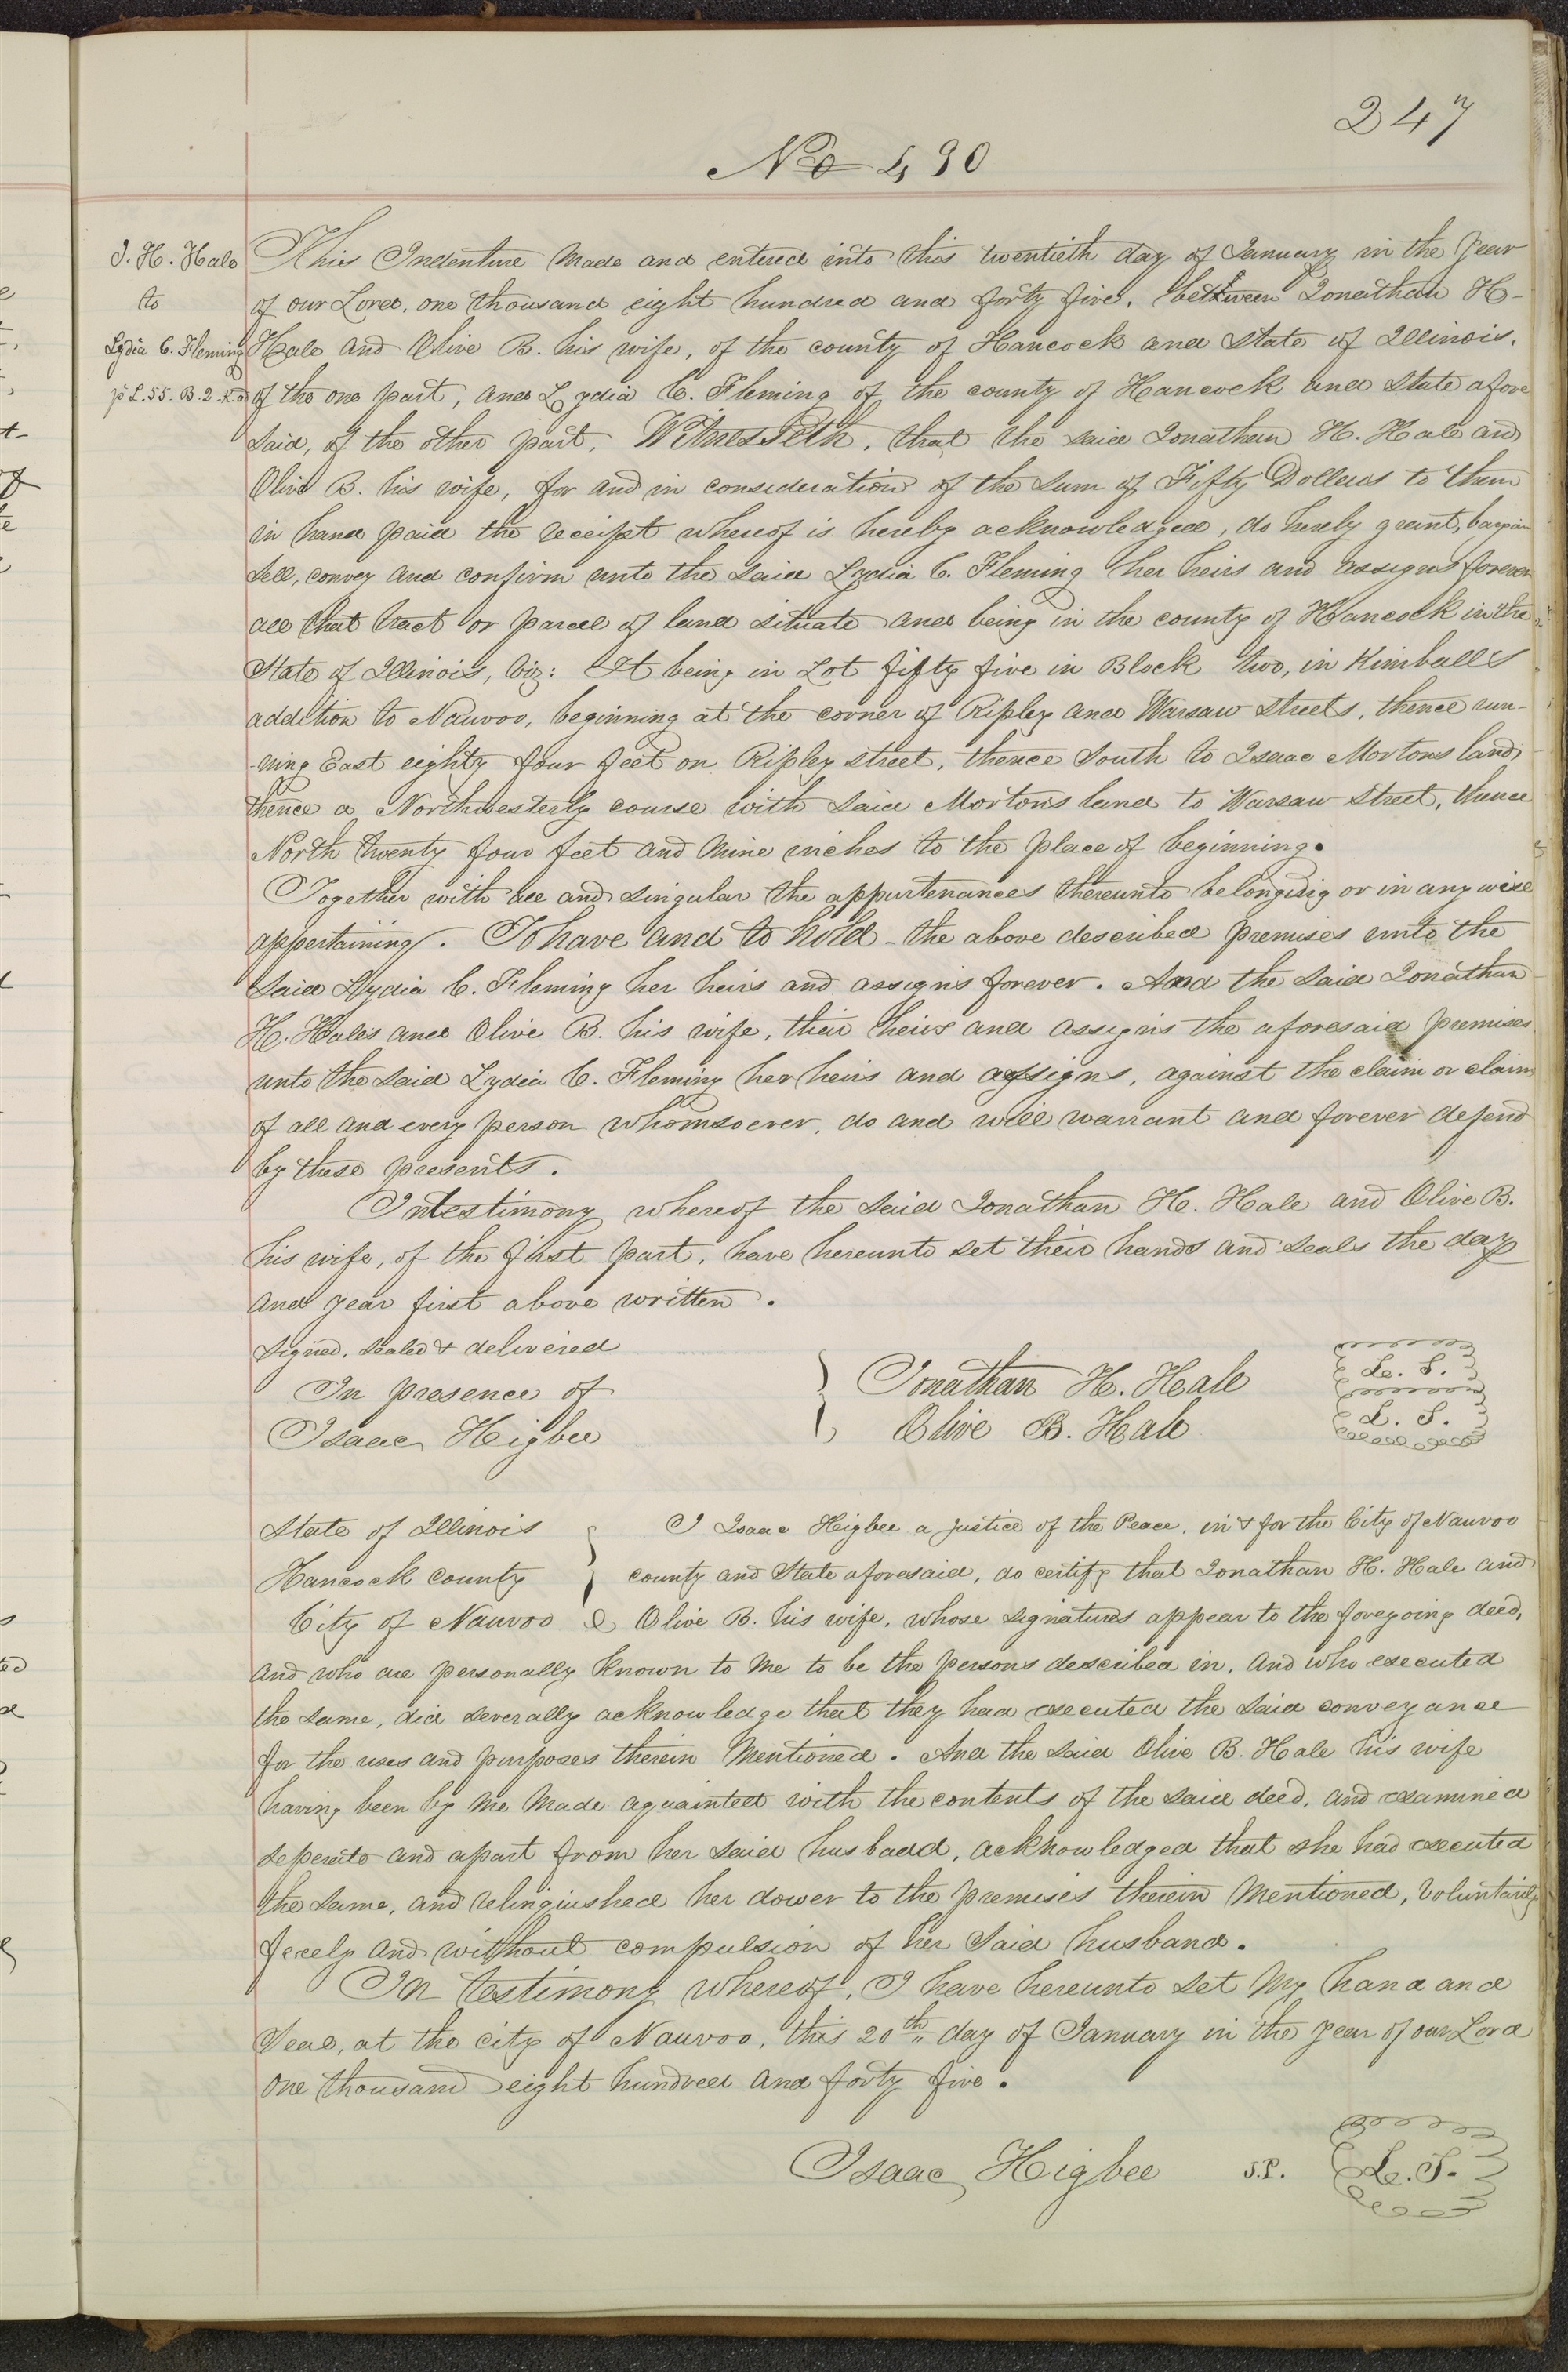 247
No 490
J. H. Hale
to
Lydia C. Fleming
pt L. 55. B. 2. K. ad
This Indenture Made and entered into this twentieth day of January in the Year
of our Lord, one thousand eight hundred and forty five, between Jonathan H-
Hale and Olive B. his wife, of the county of Hancock and State of Illinois,
of the one part, and Lydia C. Fleming of the county of Hancock and State afore
said, of the other part, Witnesseth, that the said Jonathan H. Hale and
Olive B. his wife, for and in consideration of the Sum of Fifty Dollars to them
in hand paid the receipt whereof is hereby acknowledged, do hereby grant, bargain
Sell, convey and confirm unto the said Lydia C. Fleming her heirs and assigns forever
all that tract or parcel of land situate and being in the county of Hancock in the
State of Illinois, Viz: It being in Lot fifty five in Block two, in Kimballs
addition to Nauvoo, beginning at the corner of Ripley and Warsaw Streets, thence run-
-ning East eighty four feet on Ripley street, thence South to Isaac Mortons land,
thence a Northwesterly course with said Morton's land to Warsaw Street, thence
North twenty four feet and Nine inches to the place of beginning.
Together with all and singular the appurtenances thereunto belonging or in any wise
appertaining. To have and to hold - the above described premises unto the
Said Lydia C. Fleming her heirs and assigns forever. And the said Jonathan
H. Hales and Olive B. his wife, their heirs and assigns the aforesaid premises
unto the said Lydia C. Fleming her heirs and assigns, against the claim or claims
of all and every person whomsoever, do and will warrant and forever defend
by these presents.
In testimony whereof the said Jonathan H. Hale and Olive B.
his wife, of the first part, have hereunto set their hands and seals the day
and year first above written.
Signed, sealed & delivered
In presence of
Isaac Higbee
Jonathan H. Hale L. S.
Olive B. Hale L. S.
State of Illinois
Hancock county
City of Nauvoo
I Isaac Higbee a justice of the Peace, in & for the City of Nauvoo
county and State aforesaid, do certify that Jonathan H. Hale and
Olive B. his wife, whose signatures appear to the foregoing deed,
and who are personally known to me to be the persons described in, and who executed
the same, did severally acknowledge that they had executed the said conveyance
for the uses and purposes therein Mentioned. And the said Olive B. Hale his wife
having been by me Made aquainted with the contents of the said deed, and examined
seperate and apart from her said husbadd, acknowledged that she had executed
the same, and relinqiushed her dower to the premises therein Mentioned, Voluntarily
freely and without compulsion of her Said husband.
In Testimony whereof, I have hereunto set My hand and
Seal, at the city of Nauvoo, this 20th day of January in the year of our Lord
one thousand eight hundred and forty five.
Isaac Higbee J.P. L. S.